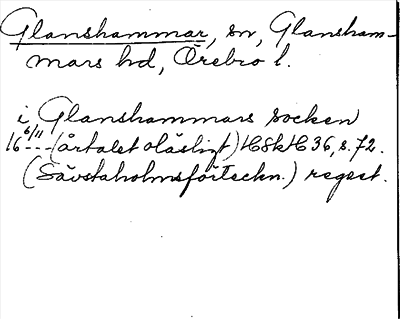 Glanshammar, sn, Glansham-
mars hd, Örebro l.
i Glanshammars socken
16 6/11 --- (årtalet oläsligt) HSkH 36, s. 72.
(Sävstaholmsförteckn.) regest.